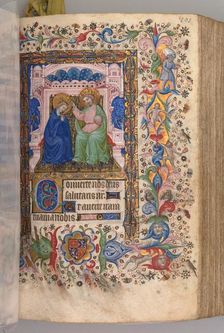 Conuerte nos deus
salutaris nr̄
Et auerte iram
tuam a nobis